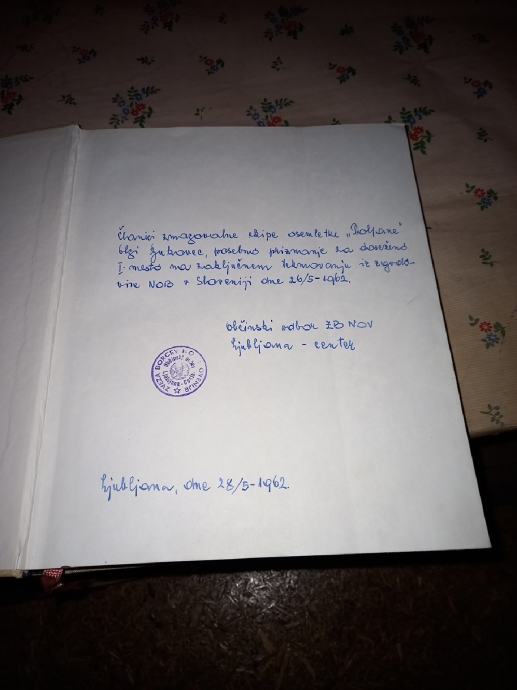 Članici zmagovalne ekipe osemletke „Poljane"
Elzi Žukovec, posebno priznanje za doseženo
I. mesto na zaključnem tekmovanju iz zgodo-
vine NOB v Sloveniji dne 26/5-1962.
Občinski odbor ZB NOV
Ljubljana - center
ZVEZA BORCEV NOV
Ljubljana, dne 28/5-1962.